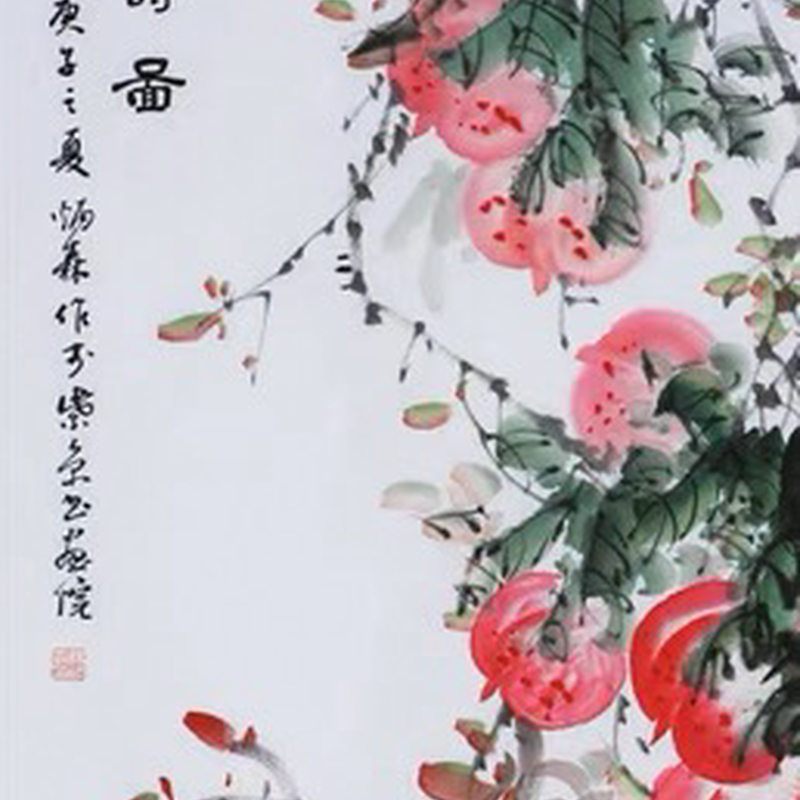 图
庚子之夏炳森作于紫京书画院